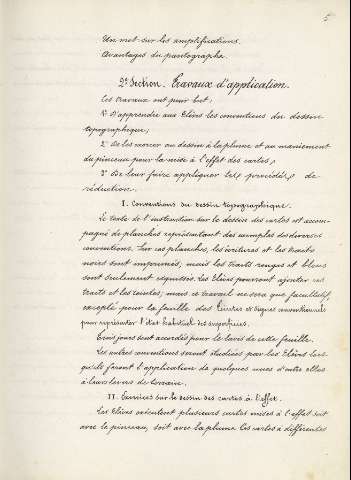 5
Un mot sur les amplifications.
Avantages du pantographe.
2e Section. Travaux d'application.
Ces travaux ont pour but;
1° D'apprendre aux Elèves les conventions du dessin
topographique;
2° De les exercer au dessin à la plume et au maniement
du pinceau pour la mise à l'effet des cartes;
3° De leur faire appliquer les procédés de
réduction.
I. Conventions du dessin topographique.
Le texte de l'instruction sur le dessin des cartes est accom-
pagné de planches représentant des exemples des diverses
conventions. Sur ces planches, les écritures et les traits
noirs sont imprimés, mais les traits rouges et bleus
sont seulement esquissés. Les Elèves pourront ajouter ces
traits et les teintes; mais ce travail ne sera que facultatif,
excepté pour la feuille des Teintes et Signes conventionnels
pour représenter l'état habituel des superficies.
Trois jours sont accordés pour le lavis de cette feuille.
Les autres conventions seront étudiées par les Elèves lors-
qu'ils feront l'application de quelques unes d'entre elles
à leurs levers de terrain.
II. Exercices sur le dessin des cartes à l'effet.
Les Elèves exécutent plusieurs cartes mises à l'effet soit
avec le pinceau, soit avec la plume. Les cartes à différentes